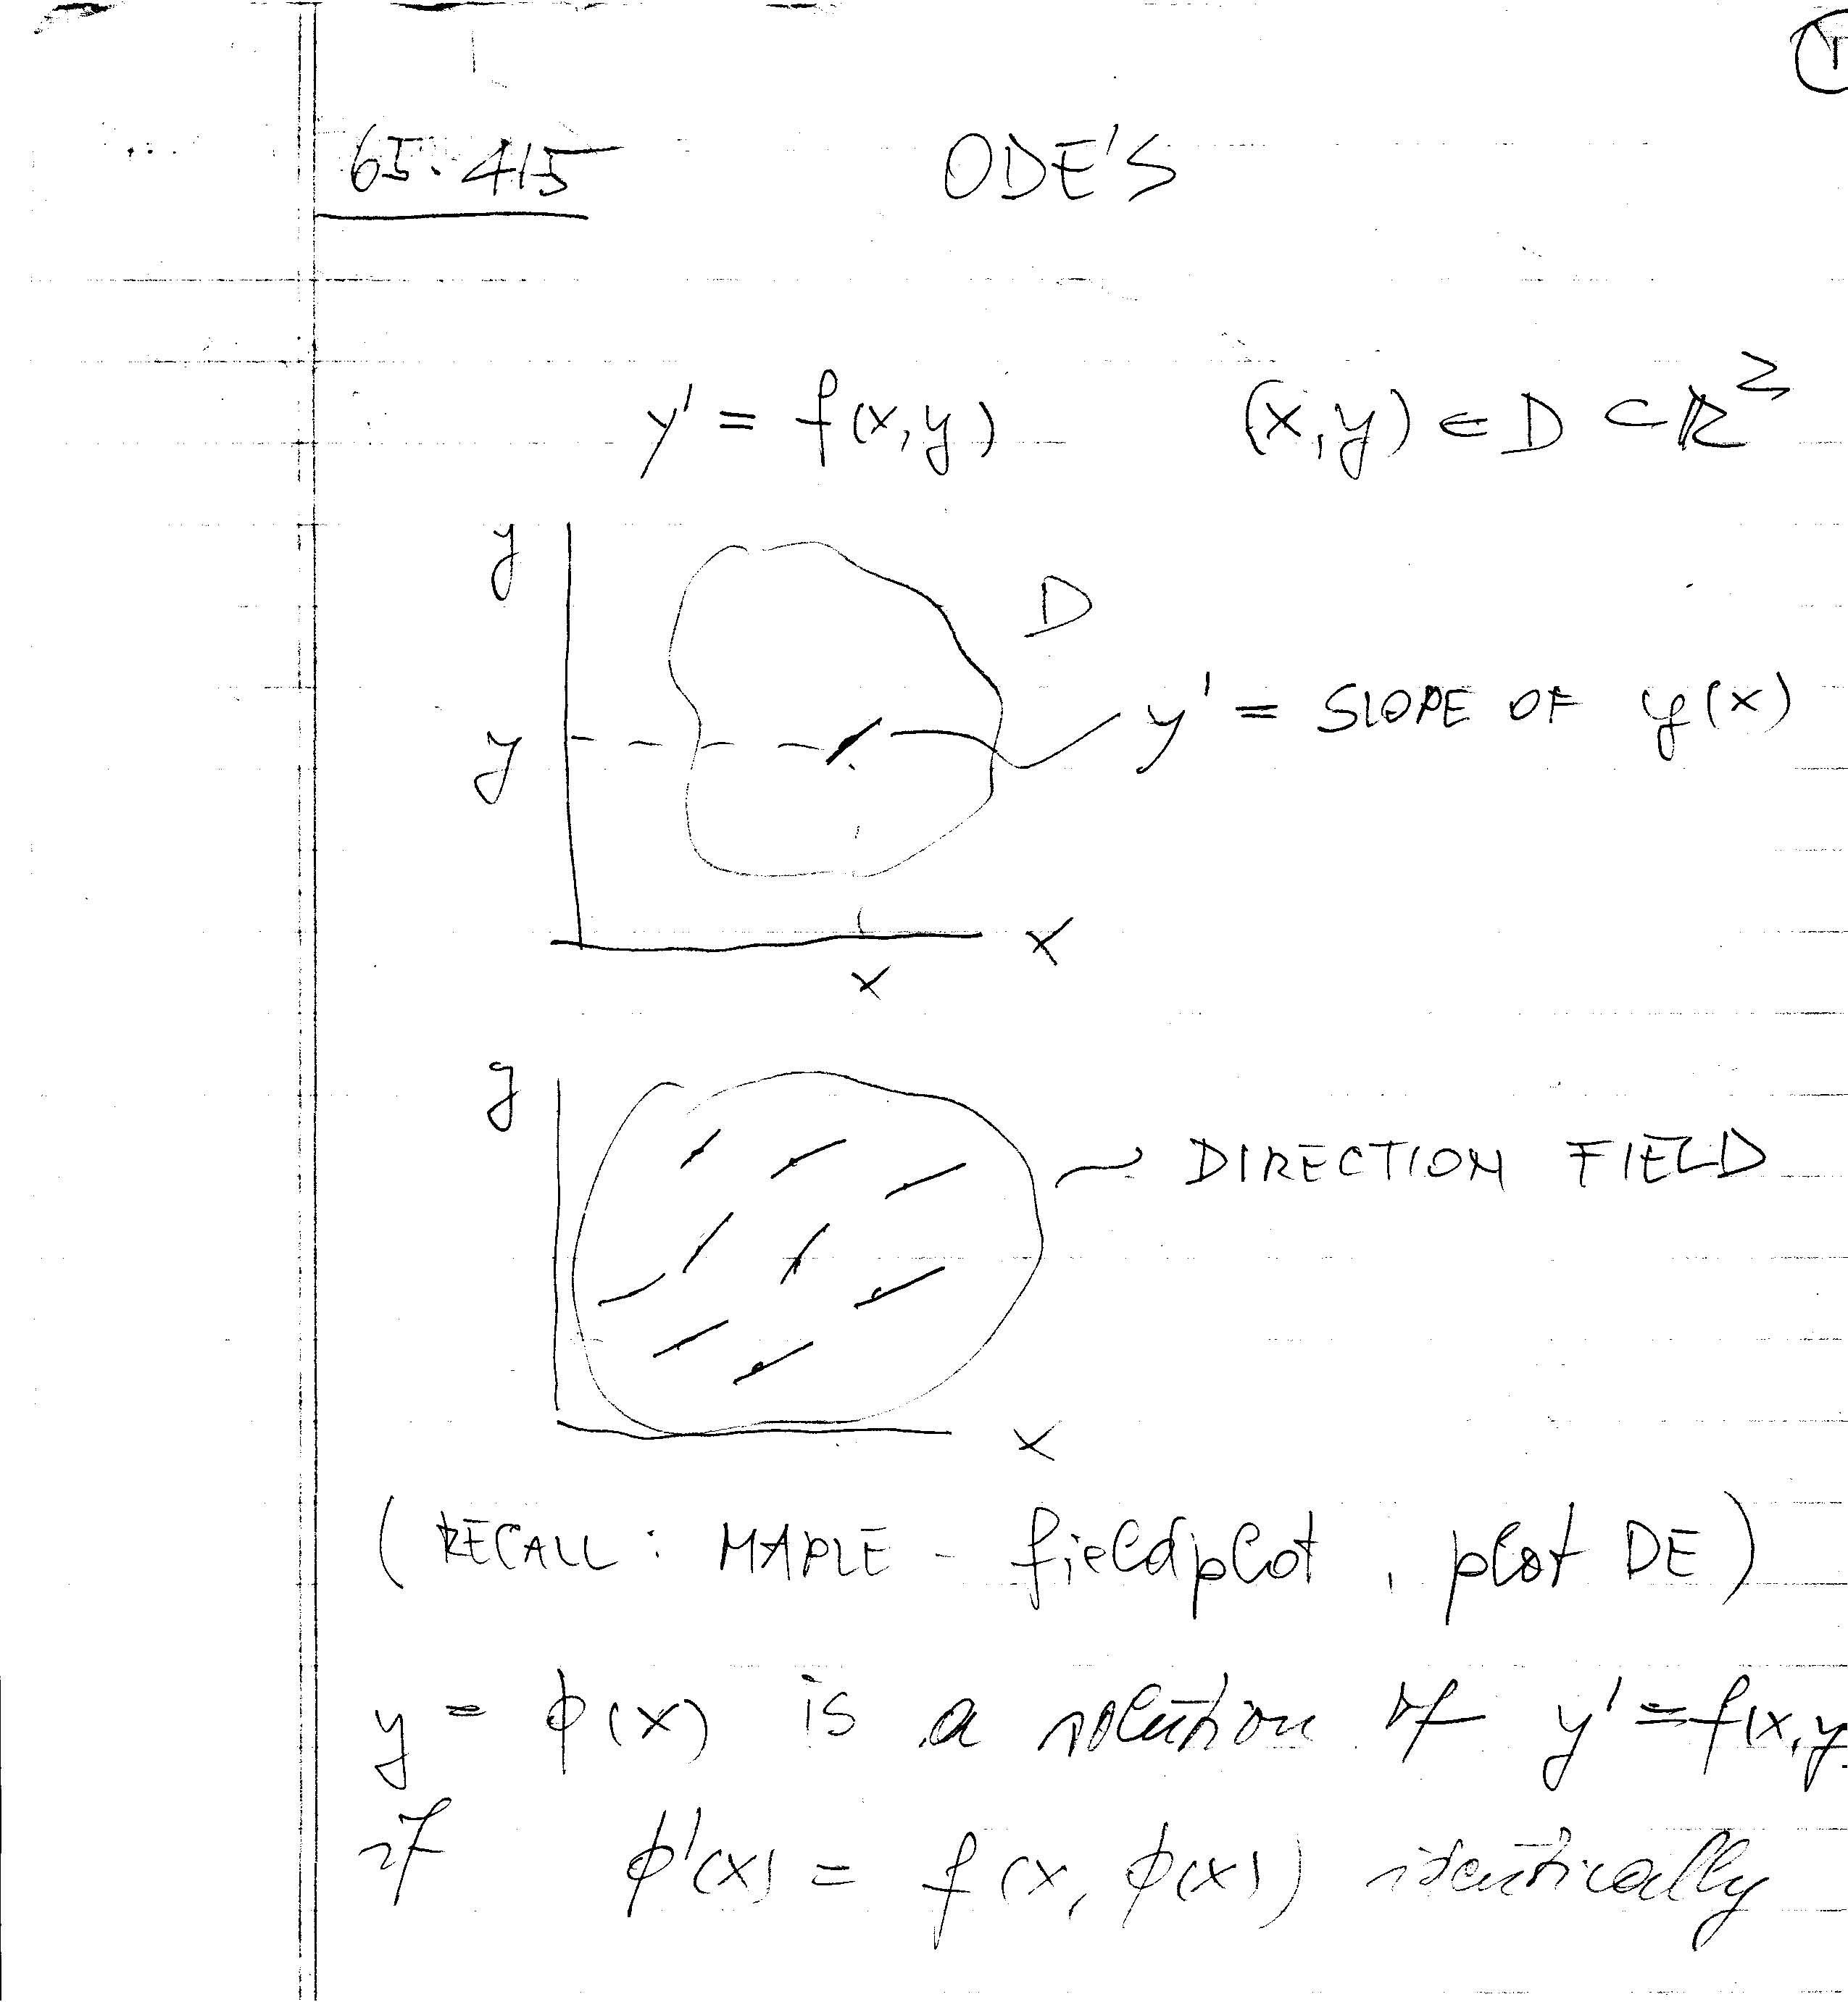 1
65.415 ODE'S
y' = f(x,y) (x,y) ∈ D ⊂ ℝ²
y
D
y y' = SLOPE OF y(x)
x
x
y
DIRECTION FIELD
x
(RECALL: MAPLE - fieldplot, plot DE)
y = ϕ(x) is a solution of y' = f(x,y
if ϕ'(x) = f(x, ϕ(x)) identically